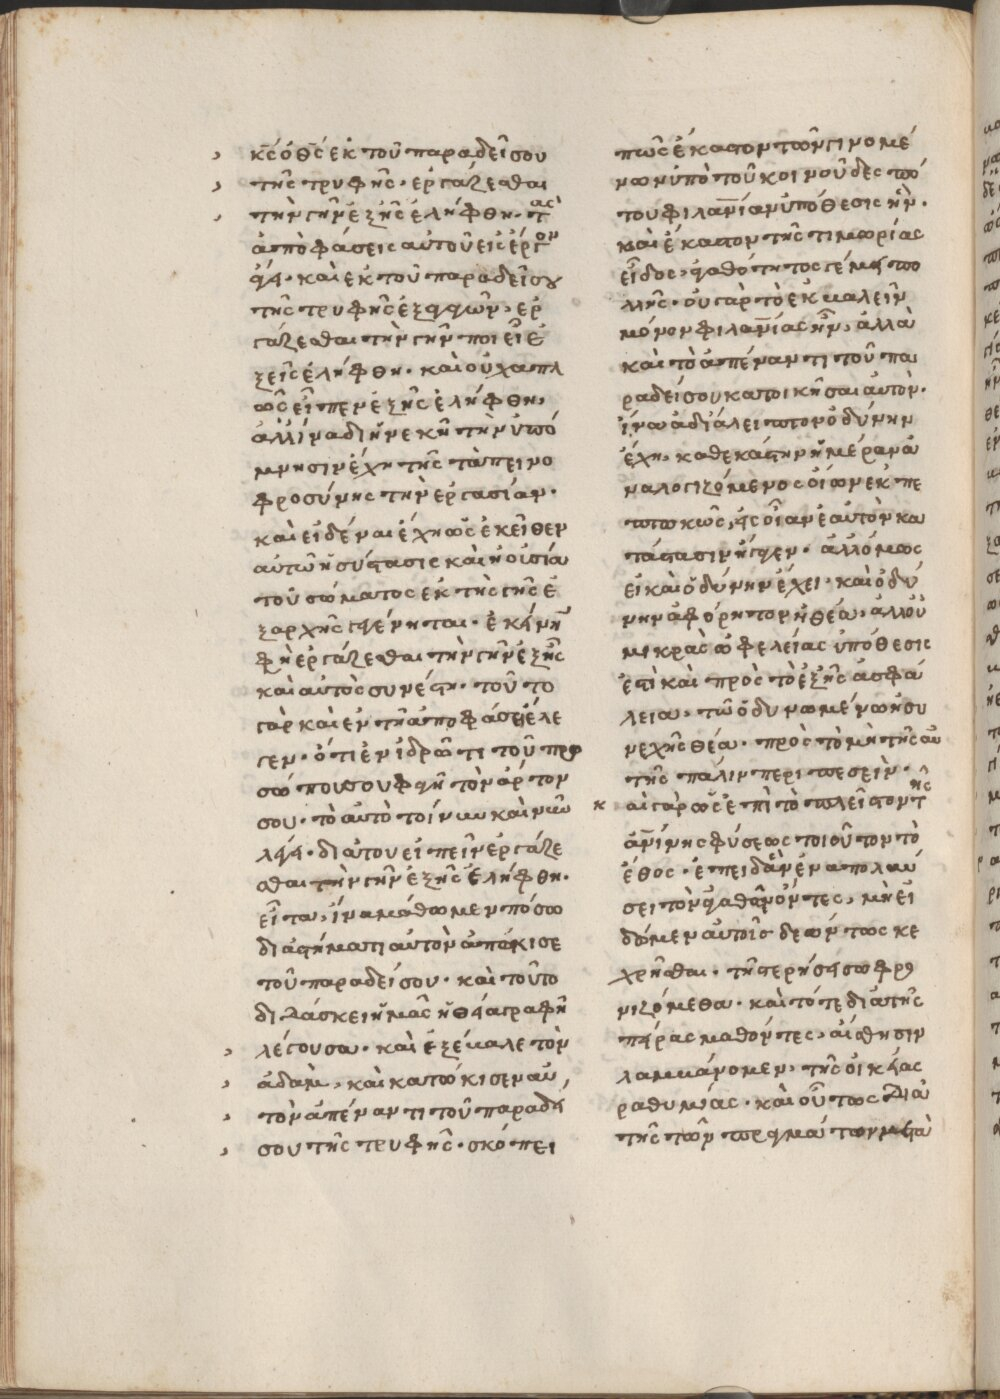 κ̅ς̅ ὁ θ̅ς̅ ἐκ τοῦ παραδείσου
τῆς τρυφῆς· ἐργάζεσθαι
τὴν γῆν ἐξ ἧς ἐλήφθη· τὰς
ἀποφάσεις αὐτοῦ εἰς ἔργον
ἄγει· καὶ ἐκ τοῦ παραδείσου
τῆς τρυφῆς ἐξαγαγὼν, ἐρ
γάζεσθαι τὴν γῆν ποιεῖ ἐ
ξ ἧς ἐλήφθη· καὶ οὐχ ἁπλ
ῶς εἶπεν ἐξ ἧς ἐλήφθη,
ἀλλ' ἵνα διηνεκῆ τὴν ὑπό
μνησιν ἔχη τῆς ταπεινο
φροσύνης τὴν ἐργασίαν·
καὶ εἰδέναι ἔχη ὡς ἐκεῖθεν
αὐτῶ ἡ σύστασις καὶ ἡ οὐσία
τοῦ σώματος ἐκ τῆς γῆς ἐ
ξαρχῆς γεγένηται· ἐκείνη
φη ἐργάζεσθαι τὴν γῆν ἐξ ἧς
καὶ αὐτὸς συνέστη· τοῦτο
γὰρ καὶ ἐν τῇ ἀποφάσει ἔλε
γεν· ὅτι ἐν ἱδρῶτι τοῦ προ
σώπου σου φαγῇ τὸν ἄρτον
σου· τὸ αὐτὸ τοίνυν καὶ νῦν
λέγει· διὰ τοῦ εἰπεῖν ἐργάζε
σθαι τὴν γῆν ἐξ ἧς ἐλήφθη·
εἶτα, ἵνα μάθωμεν πόσω
διαστήματι αὐτὸν ἀπώκισε
τοῦ παραδείσου· καὶ τοῦτο
διδάσκει ἡμᾶς ἡ θεία γραφὴ
λέγουσα· καὶ ἐξέβαλε τὸν
ἀδὰμ, καὶ κατώκισεν αὐ
τὸν ἀπέναντι τοῦ παραδεί
σου τῆς τρυφῆς· σκόπει
πῶς ἕκαστον τῶν γινομέ
νων ὑπὸ τοῦ κοινοῦ δεσπό
του φιλαν̅ίαν ὑπόθεσις ἦν·
καὶ ἕκαστον τῆς τιμωρίας
εἶδος, ἀγαθότητος γέμει πο
λλῆς· οὐ γὰρ τὸ ἐκβαλεῖν
μόνον φιλαν̅ίας ἦν, ἀλλὰ
καὶ τὸ ἀπέναντι τοῦ πα
ραδείσου κατοικῆσαι αὐτὸν·
ἵνα ἀδιάλειπτον ὀδύνην
ἔχη, καθεκάστην ἡμέραν ἀ
ναλογιζόμενος οἵων ἐκπε
πτωκῶς, εἰς οἵαν ἑαυτὸν κα
τάστασιν ἤγαγεν· ἀλλ' ὅμως
εἰ καὶ ὀδύνην ἔχει· καὶ ὀδύ
νην ἀφόρητον ἡ θέα, ἀλλ' οὐ
μικρᾶς ὠφελείας ὑπόθεσις
ἔτι καὶ πρὸς τὸ ἑξῆς ἀσφά
λεια, τῶ ὀδυνωμένω ἡ συ
νεχὴς θέα· πρὸς τὸ μὴ τῆς αὐ
τῆς πάλιν περιπεσεῖν·
αἱ γὰρ ὡς ἐπὶ τὸ πλεῖστον τῆς
ἀν̅ίνης φύσεως τοιοῦτον τὸ
ἔθος· ἐπειδὰν ἐν ἀπολαύ
σει τὸν ἀγαθῶν ὄντες, μὴ εἰ
δῶμεν αὐτοῖς δεόντως κε
χρῆσθαι· τῇ στερήσει σωφρο
νιζόμεθα· καὶ τότε διὰ τῆς
πείρας μαθόντες, αἴσθησιν
λαμβάνομεν, τῆς οἰκείας
ραθυμίας· καὶ οὕτως διὰ
τῆς τῶν πραγμάτων μετὰ